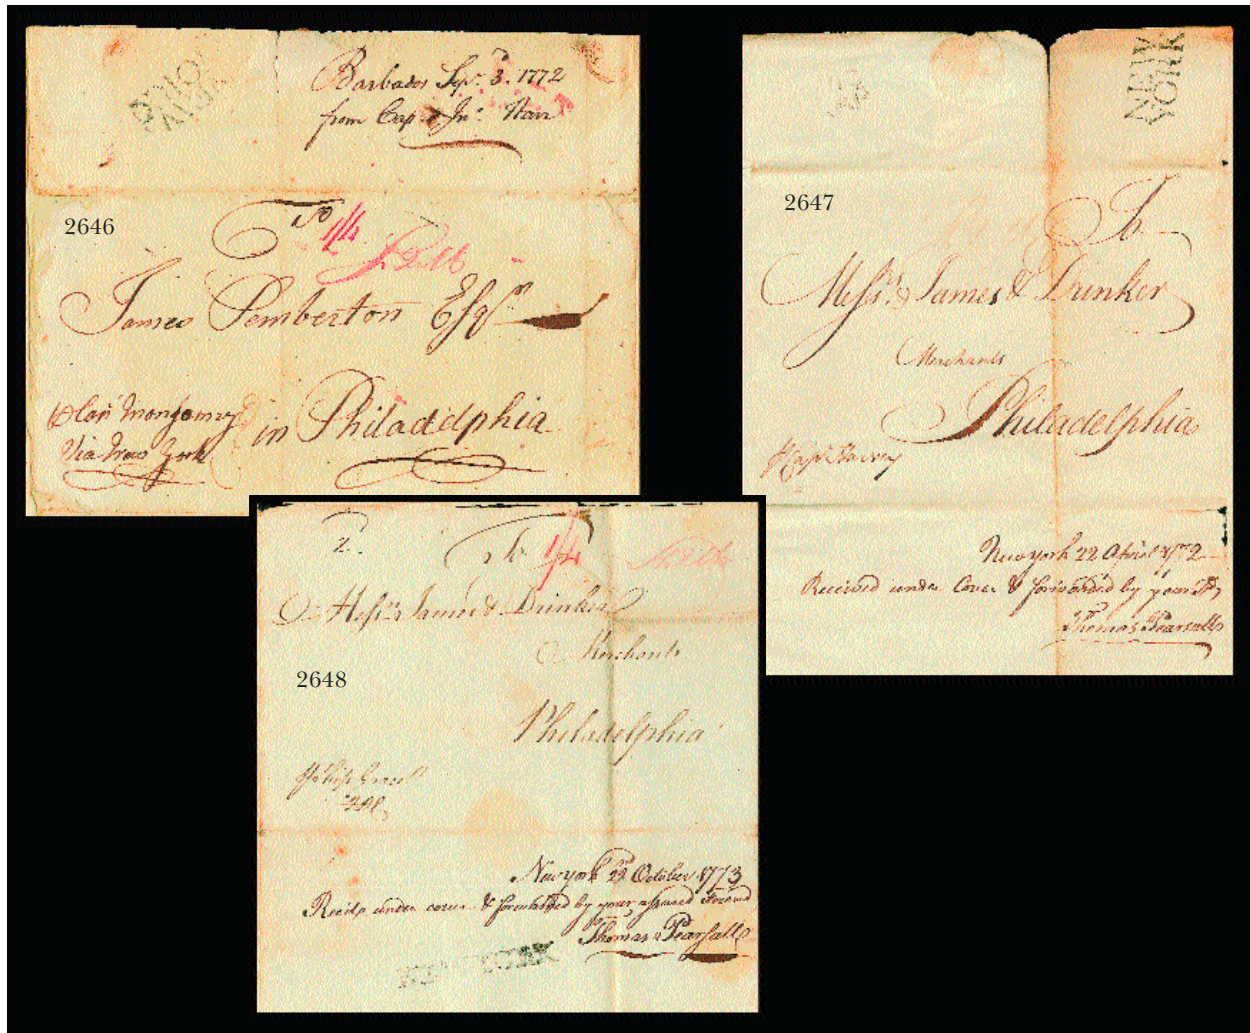 NEW
YORK
Barbados Sepr. 3d. 1772
from Capt. Jno.
2646
To 1/4
James Pemberton Esqr.
in Philadelphia
Via New York
NEW
YORK
2647
To
Messrs. James & Drinker
Merchants
Philadelphia
New york 22 April 1772
Received under Cover & forwarded by your
Thomas Pearsall
2.
To 1/4
Messrs. James & Drinker
Merchants
2648
Philadelphia
New york 22 October 1773
under cover & forwarded by your assured Friend
Thomas Pearsall
NEW YORK